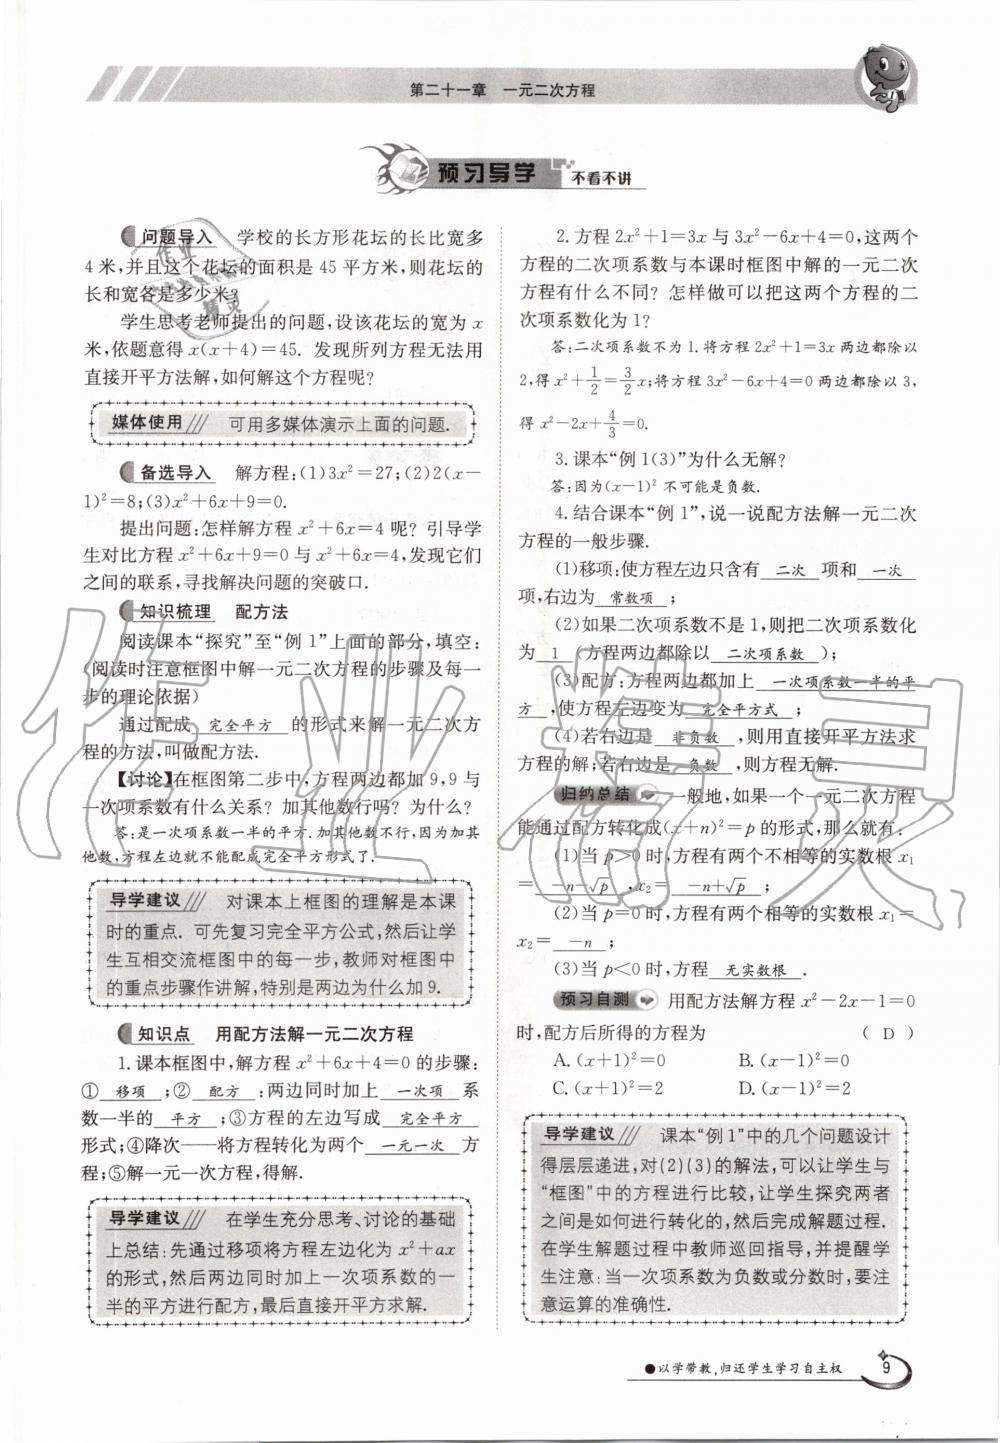 第二十一章　一元二次方程
预习导学 不看不讲
问题导入　学校的长方形花坛的长比宽多
4米,并且这个花坛的面积是45平方米,则花坛的
长和宽各是多少米?
学生思考老师提出的问题,设该花坛的宽为x
米,依题意得x(x+4)=45. 发现所列方程无法用
直接开平方法解,如何解这个方程呢?
媒体使用/// 可用多媒体演示上面的问题.
备选导入　解方程:(1)3x²=27;(2)2(x-
1)²=8;(3)x²+6x+9=0.
提出问题:怎样解方程x²+6x=4呢? 引导学
生对比方程x²+6x+9=0与x²+6x=4,发现它们
之间的联系,寻找解决问题的突破口.
知识梳理　配方法
阅读课本“探究”至“例1”上面的部分,填空:
(阅读时注意框图中解一元二次方程的步骤及每一
步的理论依据)
通过配成 完全平方 的形式来解一元二次方
程的方法,叫做配方法.
【讨论】在框图第二步中,方程两边都加9,9与
一次项系数有什么关系? 加其他数行吗? 为什么?
答:是一次项系数一半的平方.加其他数不行,因为加其
他数,方程左边就不能配成完全平方形式了.
导学建议/// 对课本上框图的理解是本课
时的重点. 可先复习完全平方公式,然后让学
生互相交流框图中的每一步,教师对框图中
的重点步骤作讲解,特别是两边为什么加9.
知识点　用配方法解一元二次方程
1.课本框图中,解方程x²+6x+4=0的步骤:
① 移项 ;② 配方 :两边同时加上 一次项 系
数一半的 平方 ;③方程的左边写成 完全平方
形式;④降次——将方程转化为两个 一元一次 方
程;⑤解一元一次方程,得解.
导学建议/// 在学生充分思考、讨论的基础
上总结:先通过移项将方程左边化为x²+ax
的形式,然后两边同时加上一次项系数的一
半的平方进行配方,最后直接开平方求解.
2.方程2x²+1=3x与3x²-6x+4=0,这两个
方程的二次项系数与本课时框图中解的一元二次
方程有什么不同? 怎样做可以把这两个方程的二
次项系数化为1?
答:二次项系数不为1.将方程2x²+1=3x两边都除以
2,得x²+1/2=3/2x;将方程3x²-6x+4=0两边都除以3,
得x²-2x+4/3=0.
3.课本“例1(3)”为什么无解?
答:因为(x-1)²不可能是负数.
4.结合课本“例1”,说一说配方法解一元二次
方程的一般步骤.
(1)移项:使方程左边只含有 二次 项和 一次
项,右边为 常数项 ;
(2)如果二次项系数不是1,则把二次项系数化
为 1 (方程两边都除以 二次项系数 );
(3)配方:方程两边都加上 一次项系数一半的平
方 ,使方程左边变为 完全平方式 ;
(4)若右边是 非负数 ,则用直接开平方法求
方程的解;若右边是 负数 ,则方程无解.
归纳总结　一般地,如果一个一元二次方程
能通过配方转化成(x+n)²=p的形式,那么就有:
(1)当p>0时,方程有两个不相等的实数根x₁
= -n-√p ,x₂= -n+√p ;
(2)当p=0时,方程有两个相等的实数根x₁=
x₂= -n ;
(3)当p<0时,方程 无实数根 .
预习自测　用配方法解方程x²-2x-1=0
时,配方后所得的方程为　( D )
A.(x+1)²=0　B.(x-1)²=0
C.(x+1)²=2　D.(x-1)²=2
导学建议/// 课本“例1”中的几个问题设计
得层层递进,对(2)(3)的解法,可以让学生与
“框图”中的方程进行比较,让学生探究两者
之间是如何进行转化的,然后完成解题过程.
在学生解题过程中教师巡回指导,并提醒学
生注意:当一次项系数为负数或分数时,要注
意运算的准确性.
●以学带教,归还学生学习自主权
9
作业精灵